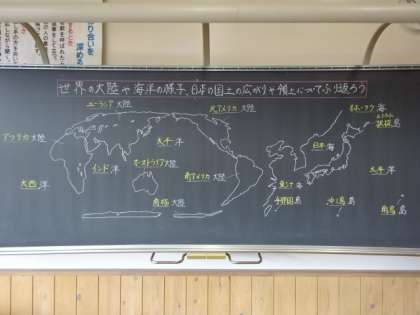 世界の大陸や海洋の様子、日本の国土の広がりや領土についてふり返ろう
ユーラシア大陸
北アメリカ大陸
オホーツク海
択捉島
アフリカ大陸
太平洋
日本海
インド洋
オーストラリア大陸
南アメリカ大陸
太平洋
大西洋
南極大陸
東シナ海
与那国島
沖ノ鳥島
南鳥島